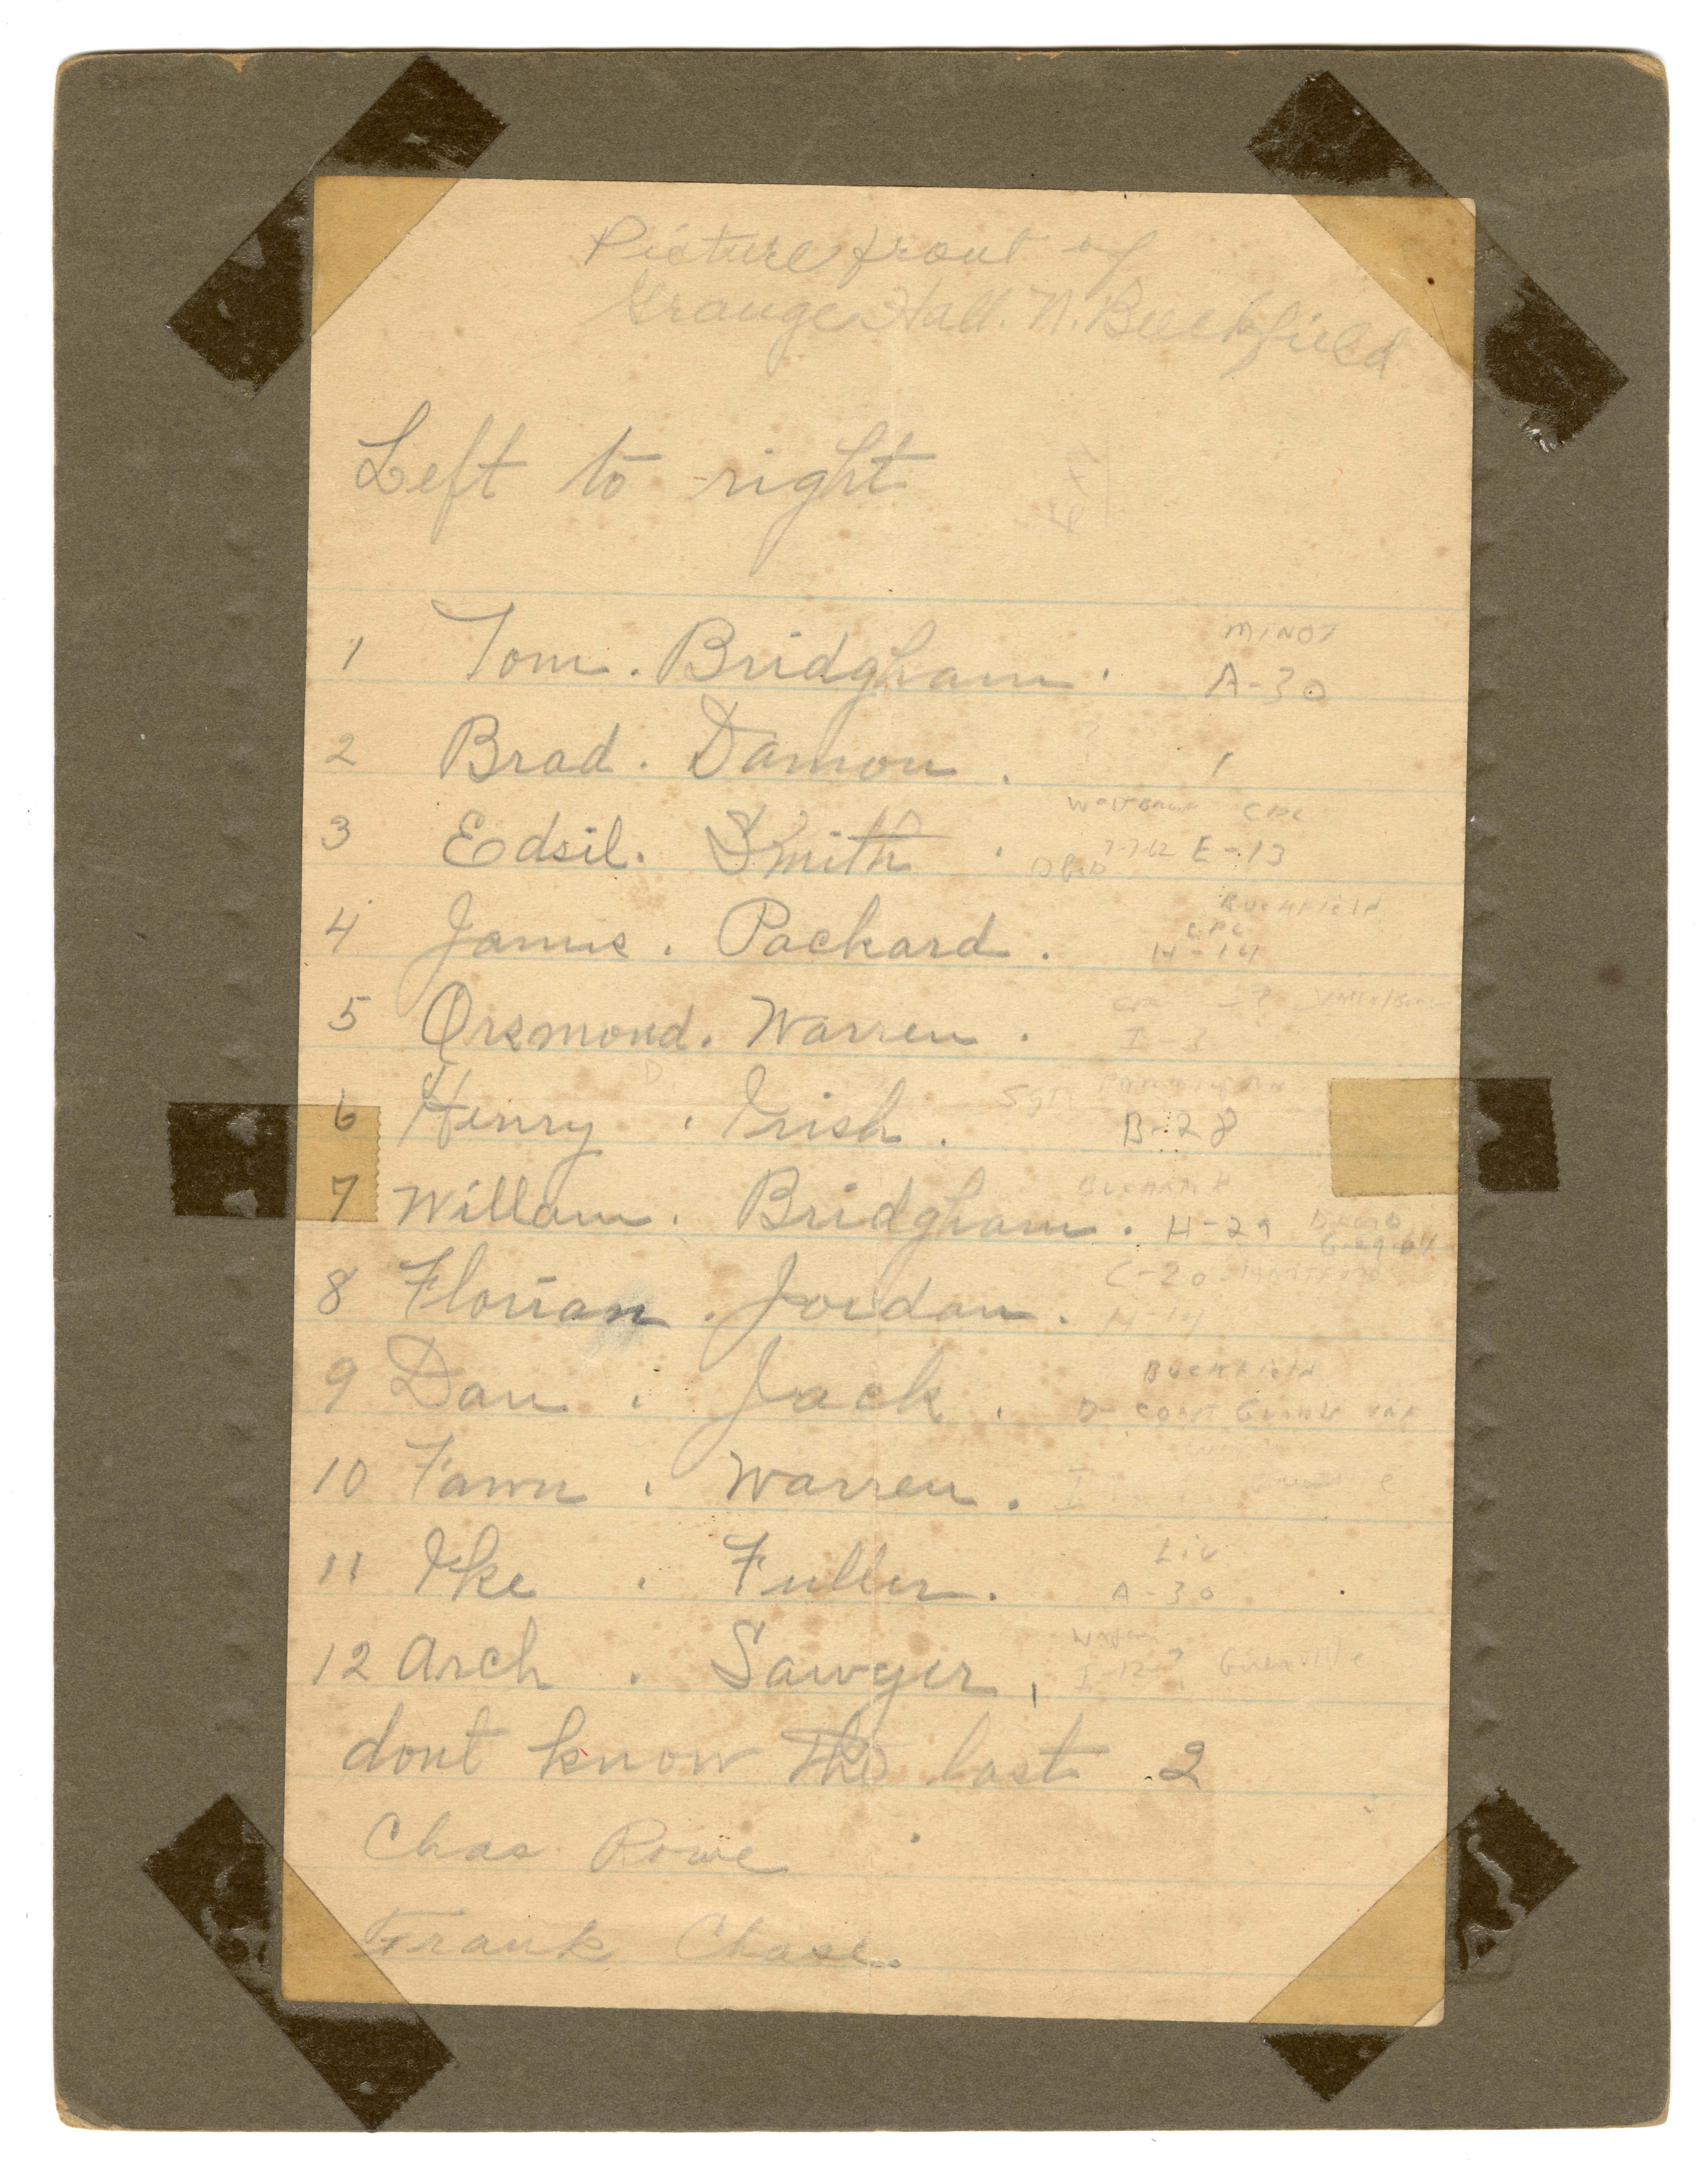 Picture front of
Grange Hall. N. Buckfield
Left to right
MINOT
1 Tom. Bridgham. A-30
2 Brad. Damon.
CPL
3 Edsil. Smith. 7-7-62 E-13
BUCKFIELD
CPL
4 James. Packard. H-14
5 Orsmond. Warren. I-3
D.
6 Henry. Irish. B-28
7 Willam. Bridgham. H-29
C-20
8 Florian. Jordan. H-14
BUCKFIELD
9 Dan. Jack. D- COAST GUARD
10 Fawn. Warren. I
LIV
11 Ike. Fuller. A-30
12 Arch. Sawyer, I-12-? Greenville
dont know the last 2
Chas Rowe
Frank Chase.